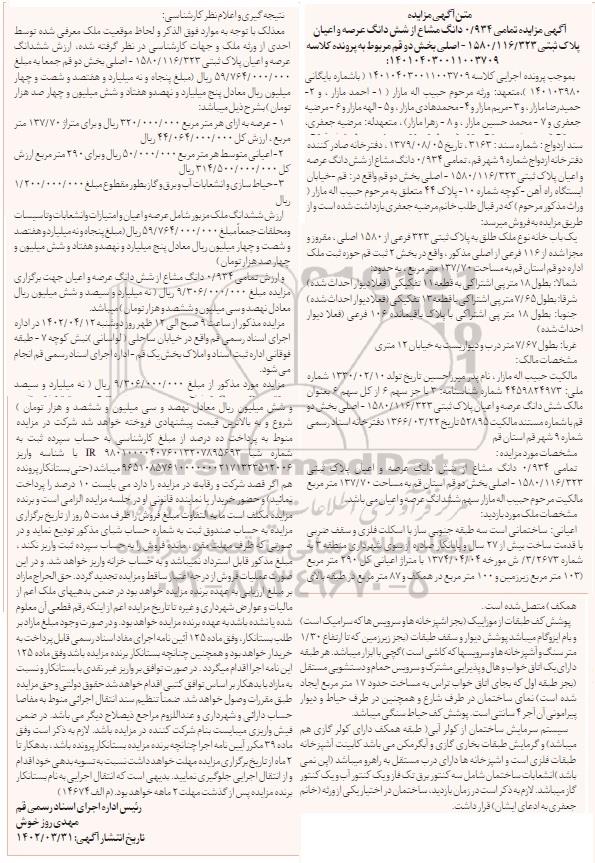 متن آگهی مزایده
آگهی مزایده تمامی ۰/۹۳۴ دانگ مشاع از شش دانگ عرصه و اعیان
پلاک ثبتی ۱۵۸۰/۱۱۶/۳۲۳ - اصلی بخش دو قم مربوط به پرونده کلاسه
۱۴۰۱۰۴۰۳۰۰۱۱۰۰۳۷۰۹:
بموجب پرونده اجرایی کلاسه ۱۴۰۱۰۴۰۳۰۰۱۱۰۰۳۷۰۹ ( باشماره بایگانی
۱۴۰۱۰۳۹۸۰ )،متعهد: ورثه مرحوم حبیب اله مازار ( ۱- احمد مازار ، و ۲-
حمیدرضا مازار، و ۳-مریم مازار و ۴-محمدهادی مازار، و ۵- الهه مازار و ۶-مرضیه
جعفری و ۷- محمد حسین مازار ، و ۸ - زهرا مازار) ، متعهدله: مرضیه جعفری،
سند ازدواج : شماره سند : ۳۱۶۳ ، تاریخ ۱۳۷۹/۰۸/۰۵ ، دفترخانه صادر کننده
دفترخانه ازدواج شماره ۹ شهر قم ، تمامی ۰/۹۳۴ دانگ مشاع از شش دانگ عرصه
و اعیان پلاک ثبتی ۱۵۸۰/۱۱۶/۳۲۳ - اصلی بخش دو قم واقع در: قم -خیابان
ایستگاه راه آهن -کوچه شماره ۱۰- پلاک ۴۴ متعلق به مرحوم حبیب اله مازار (
وراث مذکور مرحوم ) که در قبال طلب خانم مرضیه جعفری بازداشت شده است و از
طریق مزایده به فروش میرسد:
یک باب خانه نوع ملک طلق به پلاک ثبتی ۳۲۳ فرعی از ۱۵۸۰ اصلی ، مفروز و
مجزا شده از ۱۱۶ فرعی از اصلی مذکور ، واقع در بخش ۲ ثبت قم حوزه ثبت ملک
اداره دو قم استان قم به مساحت ۱۳۷/۷۰ متر مربع ، به حدود:
شمالا: بطول ۱۸ متر پی اشتراکی به قطعه ۱۱ تفکیکی (فعلا دیوار احداث شده)
شرقا: بطول ۷/۶۵ متر پی اشتراکی با قطعه ۱۳ تفکیکی (فعلا دیوار احداث شده)
جنوبا: بطول ۱۸ متر پی اشتراکی با پلاک باقیمانده ۱۰۶ فرعی (فعلا دیوار
احداث شده )
غربا: بطول ۷/۶۷ متر درب و دیواریست به خیابان ۱۲ متری
مشخصات مالک:
مالکیت حبیب اله مازار ، نام پدر میرزاحسین تاریخ تولد ۱۳۳۰/۰۲/۱۰ شماره
ملی: ۴۴۵۹۸۲۴۹۷۳ شماره شناسنامه: ۳ با جز سهم ۶ از کل سهم ۶ بعنوان
مالک شش دانگ عرصه و اعیان پلاک ثبتی ۱۵۸۰/۱۱۶/۳۲۳ - اصلی بخش دو
قم با شماره مستند مالکیت ۵۲۸۹۵ تاریخ ۱۳۶۶/۰۳/۲۲ دفترخانه اسناد رسمی
شماره ۹ شهر قم استان قم
مشخصات مورد مزایده:
تمامی ۰/۹۳۴ دانگ مشاع از شش دانگ عرصه و اعیان پلاک ثبتی
۱۵۸۰/۱۱۶/۳۲۳ - اصلی بخش دو قم استان قم به مساحت ۱۳۷/۷۰ متر مربع
مالکیت مرحوم حبیب اله مازار سهم ششدانگ عرصه و اعیان می باشد.
مشخصات ملک مورد بازدید:
اعیانی: ساختمانی است سه طبقه جنوبی ساز با اسکلت فلزی و سقف ضربی
با قدمت ساخت بیش از ۲۷ سال و پایانکار صادره از سوی شهرداری منطقه ۳ به
شماره ۳/۲۶۷۳/ش مورخه ۱۳۷۴/۰۴/۰۴ با متراژ اعیانی کل ۲۹۰ متر مربع
(۱۰۳ متر مربع زیرزمین و ۱۰۰ متر مربع در همکف و ۸۷ متر مربع در طبقه بالای
همکف ) متصل شده است.
پوشش کف طبقات از موزاییک (بجز آشپزخانه ها و سرویس ها که سرامیک است)
و بام ایزوگام میباشد پوشش دیوار و سقف طبقات (بجز زیرزمین که تا ارتفاع ۱/۳۰
متر سنگ و آشپزخانه ها و سرویسها که کاشی است )گچی با ابزار میباشد. هر طبقه
دارای یک اتاق خواب و هال و پذیرایی مشترک و سرویس حمام و دستشویی مستقل
(بجز طبقه اول که بجای اتاق خواب تراس به مساحت حدود ۱۷ متر مربع ایجاد
شده است) نمای ساختمان در طرف شارع و همچنین در طرف حیاط و دیوار
پیرامونی آن آجر ۴ سانتی است. پوشش کف حیاط سنگی میباشد.
سیستم سرمایش ساختمان از کولر آبی( طبقه همکف دارای کولر گازی هم
میباشد) و گرمایش طبقات بخاری گازی و آبگرمکن می باشد کابینت آشپزخانه
طبقات فلزی است و آشپزخانه ها دارای درب مستقل به راهرو میباشد (اپن نمی
باشد) انشعابات ساختمان شامل سه کنتور برق تک فاز و یک کنتور آب و یک کنتور
گاز میباشد. لازم به ذکر است در زمان بازدید، ساختمان در اختیار یکی از ورثه (خانم
جعفری به ادعای ایشان) قرار داشت.
نتیجه گیری و اعلام نظر کارشناسی:
معذلک با توجه به موارد فوق الذکر و لحاظ موقعیت ملک معرفی شده توسط
احدی از ورثه ملک و جهات کارشناسی در نظر گرفته شده، ارزش ششدانگ
عرصه و اعیان پلاک ثبتی ۱۵۸۰/۱۱۶/۳۲۳ - اصلی بخش دو قم جمعا به مبلغ
۵۹/۷۶۴/۰۰۰/۰۰۰ ریال (مبلغ پنجاه و نه میلیارد و هفتصد و شصت و چهار
میلیون ریال معادل پنج میلیارد و نهصدو هفتاد و شش میلیون و چهار صد هزار
تومان )بشرح ذیل میباشد:
۱ - عرصه به ازای هر متر مربع ۳۲۰/۰۰۰/۰۰۰ ریال و برای متراژ ۱۳۷/۷۰ متر
مربع ، ارزش کل ۴۴/۰۶۴/۰۰۰/۰۰۰ ریال
۲- اعیانی متوسط هر متر مربع ۵۰/۰۰۰/۰۰۰ ریال و برای ۲۹۰ متر مربع ارزش
کل ۳۱۴/۵۰۰/۰۰۰/۰۰۰ ریال
۳-حیاط سازی و انشعابات آب و برق و گاز بطور مقطوع مبلغ ۱/۲۰۰/۰۰۰/۰۰۰
ریال
ارزش ششدانگ ملک مزبور شامل عرصه و اعیان و امتیازات و انشعابات و تاسیسات
و محلقات جمعا مبلغ ۵۹/۷۶۴/۰۰۰/۰۰۰ ریال (مبلغ پنجاه و نه میلیارد و هفتصد
و شصت و چهار میلیون ریال معادل پنج میلیارد و نهصدو هفتاد و شش میلیون و
چهار صد هزار تومان )
و ارزش تمامی ۰/۹۳۴ دانگ مشاع از شش دانگ عرصه و اعیان جهت برگزاری
مزایده مبلغ ۹/۳۰۶/۰۰۰/۰۰۰ ریال ( نه میلیارد و سیصد و شش میلیون ریال
معادل نهصد و سی میلیون و ششصد و هزار تومان ) میباشد.
مزایده مذکور از ساعت ۹ صبح الی ۱۲ ظهر روز دوشنبه ۱۴۰۲/۰۴/۱۲ در اداره
اجرای اسناد رسمی قم واقع در خیابان ساحلی ( لواسانی )نبش کوچه ۷ - طبقه
فوقانی اداره ثبت اسناد و املاک بخش یک قم -اداره اجرای اسناد رسمی قم انجام
می شود.
مزایده مورد مذکور از مبلغ ۹/۳۰۶/۰۰۰/۰۰۰ ریال ( نه میلیارد و سیصد
و شش میلیون ریال معادل نهصد و سی میلیون و ششصد و هزار تومان )
شروع و به بالاترین قیمت پیشنهادی فروخته خواهد شد شرکت در مزایده
منوط به پرداخت ده درصد از مبلغ کارشناسی به حساب سپرده ثبت به
شماره شبا IR ۹۸۰۱۰۰۰۰۴۰۶۱۰۱۳۲۰۷۸۹۵۶۹۳ با شناسه واریز
۹۶۵۱۰۸۵۷۶۱۰۰۰۰۰۰۰۲۱۷۱۳۲۳۵۱۲۰۰۶ میباشد (حتی بستانکار پرونده
هم اگر قصد شرکت و رقابت در مزایده را دارد می بایست ۱۰ درصد را پرداخت
نمائید) و حضور خریدار یا نماینده قانونی او در جلسه مزایده الزامی است و برنده
مزایده مکلف است مابه التفاوت مبلغ فروش را ظرف مدت ۵ روز از تاریخ برگزاری
مزایده به حساب صندوق ثبت به شماره حساب شبای مذکور تودیع نماید و در
صورتی که ظرف مهلت مقرر ، مانده فروش را به حساب سپرده ثبت واریز نکند ،
مبلغ مذکور قابل استرداد نمیباشد و به حساب خزانه واریز خواهد شد. و در این
صورت عملیات فروش از درجه اعتبار ساقط و مزایده تجدید گردد. حق الحراج مازاد
بر مبلغ ارزیابی به عهده برنده مزایده خواهد بود در ضمن بدهیهای ملک اعم از
مالیات و عوارض شهرداری و غیره تا تاریخ مزایده اعم از اینکه رقم قطعی آن معلوم
شده یا نشده باشد به عهده برنده مزایده خواهد بود. و در صورت وجود مبلغ مازاد بر
طلب بستانکار، وفق ماده ۱۲۵ آئین نامه اجرای مفاد اسناد رسمی قابل پرداخت به
خریدار خواهد بود و همچنین چنانچه بستانکار برنده مزایده باشد وفق ماده ۱۲۵
این نامه اجرا اقدام میگردد . در صورت توافق بر واریز غیر نقدی با بستانکار و نسبت
به مازاد با بدهکار بر اساس توافق کتبی اقدام خواهد شد حقوق دولتی و حق مزایده
طبق مقررات وصول خواهد شد. ضمناً تنظیم سند انتقال اجرائی منوط به مفاصا
حساب دارائی و شهرداری و عنداللزوم مراجع ذیصلاح دیگر می باشد. در ضمن
فیش واریزی میبایست بنام شرکت کننده در مزایده باشد. لازم به ذکر است وفق
ماده ۳۹ مکرر آیین نامه اجرا چنانچه برنده مزایده بستانکار پرونده باشد ، بدهکار تا
۲ ماه از تاریخ برگزاری مزایده مهلت خواهد داشت نسبت به تسویه بدهی خود اقدام
و از انتقال اجرایی جلوگیری نمایید. بدیهی است که انتقال اجرایی به نام بستانکار
برنده مزایده پس از گذشت مهلت ۲ ماهه خواهد بود. (م الف ۱۴۶۷۴)
رئیس اداره اجرای اسناد رسمی قم
مهدی روز خوش
تاریخ انتشار آگهی: ۱۴۰۲/۰۳/۳۱